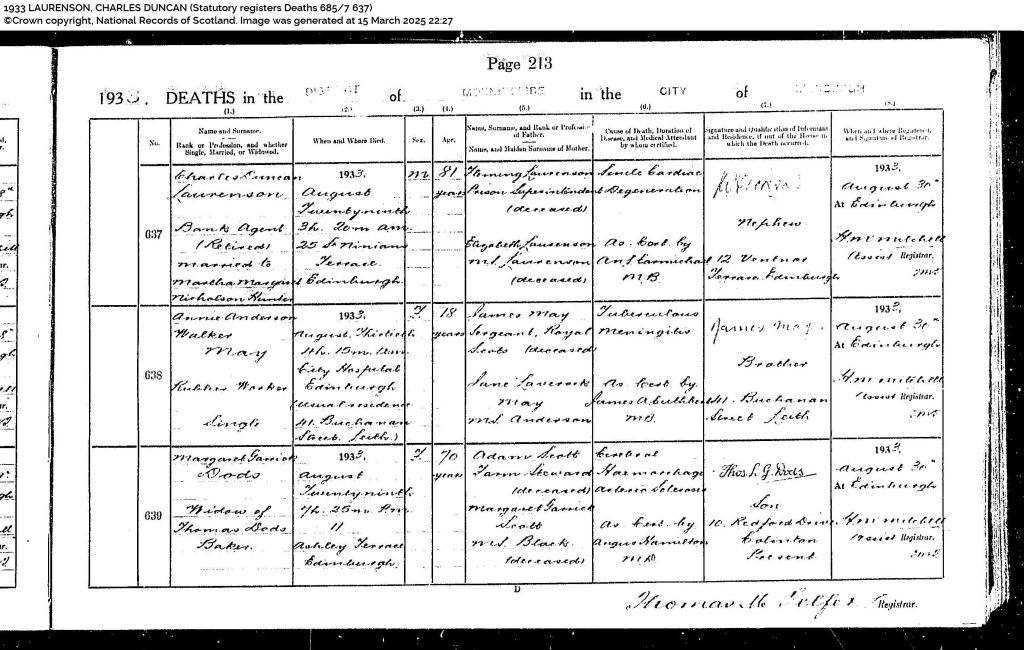 1933 LAURENSON, CHARLES DUNCAN (Statutory registers Deaths 685/7 637)
©Crown copyright, National Records of Scotland. Image was generated at 15 March 2025 22:27
Page 213
1933. DEATHS in the DISTRICT of in the CITY of
(1.) (2.) (3.) (4.) (5.) (6.) (7.) (8.)
No.
Name and Surname.
Rank or Profession, and whether
Single, Married, or Widowed.
When and Where Died.
Sex.
Age.
Name, Surname, and Rank or Profession
of Father.
Name, and Maiden Surname of Mother.
Cause of Death, Duration of
Disease, and Medical Attendant
by whom certified.
Signature and Qualification of Informant
and Residence, if out of the House in
which the Death occurred.
When and where Registered,
and Signature of Registrar.
637
Charles Duncan
Laurenson
Bank Agent
(Retired)
married to
Martha Margaret
Nicholson Hunter
1933.
August
Twentyninth
3h. 20m am.
25 St Ninians
Terrace
Edinburgh
M
81
years
Fleming Laurenson
Prison Superintendent
(deceased)
Elizabeth Laurenson
m.s. Laurenson
(deceased)
Senile Cardiac
Degeneration
As Cert. by
Carmichael
M.B.
Nephew
12 Ventnor
Terrace, Edinburgh
1933.
August 30th
At Edinburgh
H. M. Mitchell
Assist Registrar.
638
Annie Anderson
Walker
May
Rubber Worker
Single
1933.
August, Thirtieth
4h. 15m. a.m.
City Hospital
Edinburgh
(usual residence
41, Buchanan
Street. Leith.)
F.
18
years
James May
Sergeant, Royal
Scots (deceased)
Jane Laverock
May
m.s. Anderson
Tuberculous
Meningitis
As Cert by
James A.
M.B.
James May.
Brother
41. Buchanan
Street Leith
1933.
August 30th
At Edinburgh
H. M. Mitchell
Assist Registrar.
639
Margaret Garrick
Dods
Widow of
Thomas Dods
Baker.
1933.
August
Twentyninth
7h. 25m. P.m.
11
Ashley Terrace
Edinburgh
F.
70
years
Adam Scott
Farm Steward
(deceased)
Margaret Garrick
Scott
m.s. Black
(deceased)
Cerebral
Haemorrhage
Arterio Sclerosis
As Cert. by
Angus Hamilton
M.B.
Thos. S. G. Dods
Son
10. Redford Drive
Colinton
Present
1933.
August 30th
At Edinburgh
H. M. Mitchell
Assist Registrar.
D
Thomas M. Registrar.